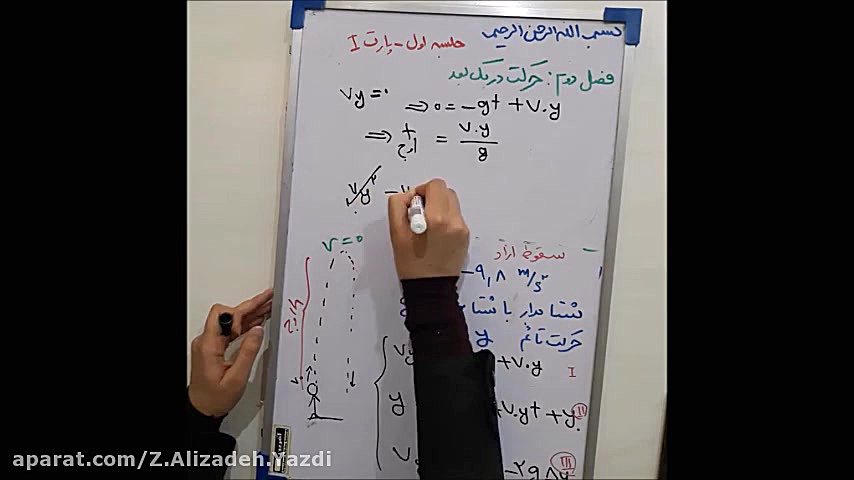 بسم الله الرحمن الرحیم
جلسه اول - پارت I
فصل دوم: حرکت در یک بعد
Vy = 0 ⇒ 0 = -gt + V.y
⇒ t اوج = V.y / g
Vy² - V
V = 0
سقوط آزاد
-9,8 m/s²
شتابدار با شتا
حرکت قائم y
Vy + V.y I
y + V.yt + y. II
Vy - 2gΔy III
اوج
V.
aparat.com/Z.Alizadeh.Yazdi